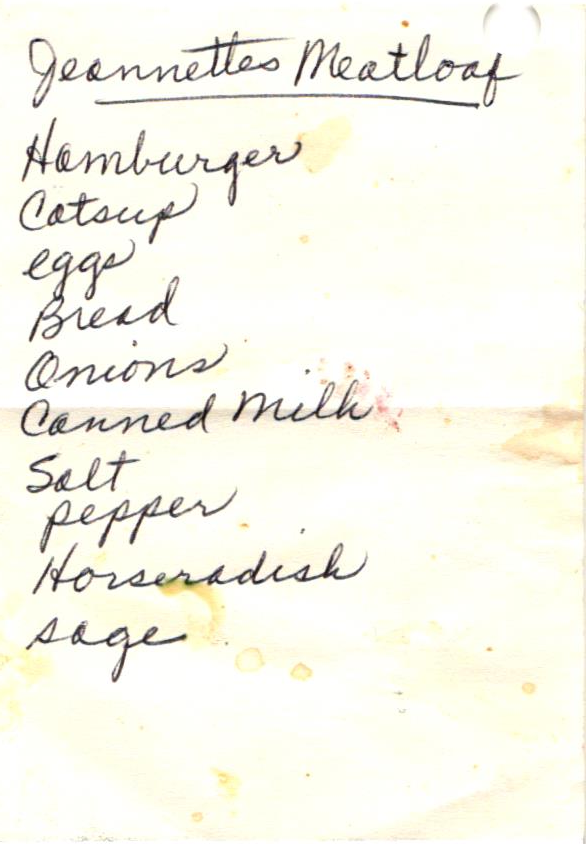 Jeannettes Meatloaf
Hamburger
Catsup
eggs
Bread
Onions
Canned Milk
Salt
pepper
Horseradish
sage